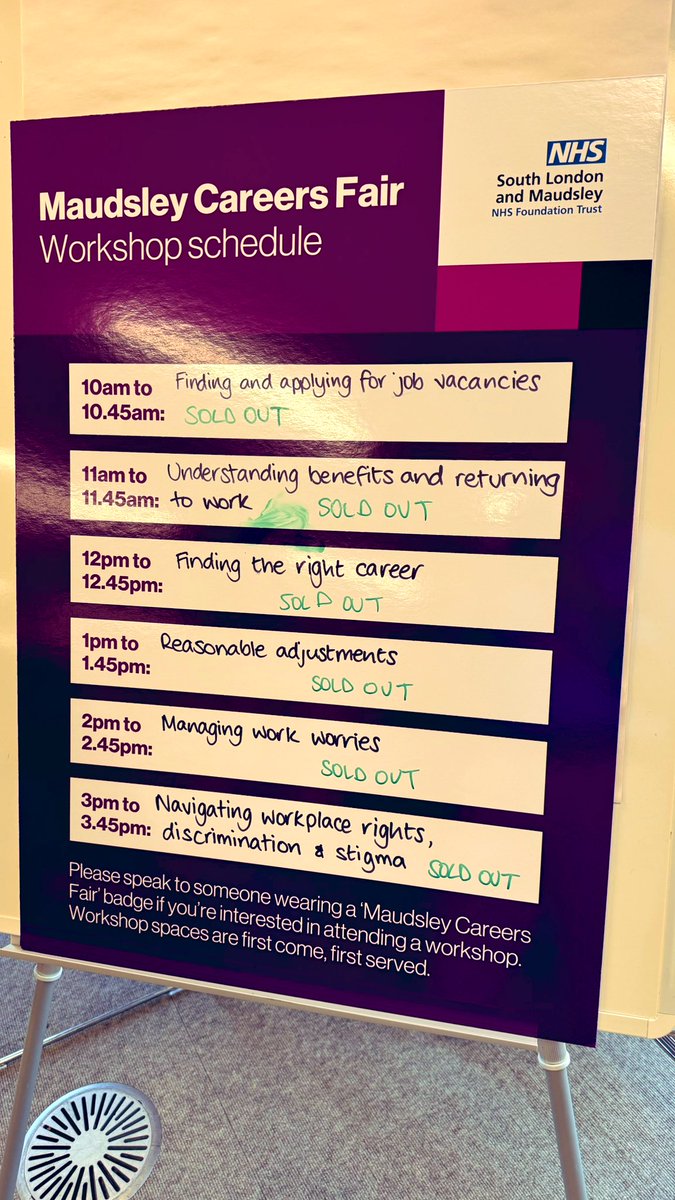 Maudsley Careers Fair
Workshop schedule
NHS
South London
and Maudsley
NHS Foundation Trust
10am to
10.45am:
Finding and applying for job vacancies
SOLD OUT
11am to
11.45am:
Understanding benefits and returning
to work
SOLD OUT
12pm to
12.45pm:
Finding the right career
SOLD OUT
1pm to
1.45pm:
Reasonable adjustments
SOLD OUT
2pm to
2.45pm:
Managing work worries
SOLD OUT
3pm to
3.45pm:
Navigating workplace rights,
discrimination & stigma
SOLD OUT
Please speak to someone wearing a 'Maudsley Careers
Fair' badge if you're interested in attending a workshop.
Workshop spaces are first come, first served.